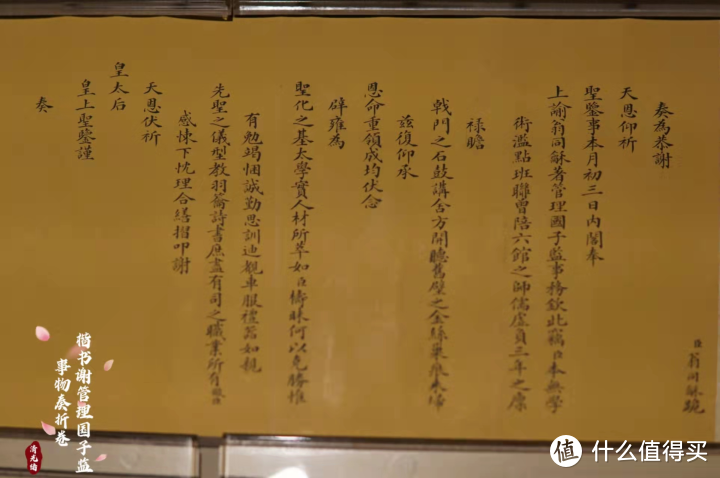 臣翁同龢跪
奏為恭謝
天恩仰祈
聖鑒事本月初三日內閣奉
上諭翁同龢著管理國子監事務欽此竊臣本無學
術濫點班聯曾陪六館之師儒虛負三年之廩
祿瞻
戟門之石鼓講舍方開聽舊壁之金絲巢痕未埽
茲復仰承
恩命重領成均伏念
辟雍為
聖化之基太學實人材所萃如臣檮昧何以克勝惟
有勉竭悃誠勤思訓迪觀車服禮器如親
先聖之儀型教羽籥詩書庶盡有司之職業所有微臣
感悚下忱理合繕摺叩謝
天恩伏祈
皇太后
皇上聖鑒謹
奏
楷书谢管理国子监
事物奏折卷
清光绪
值 什么值得买